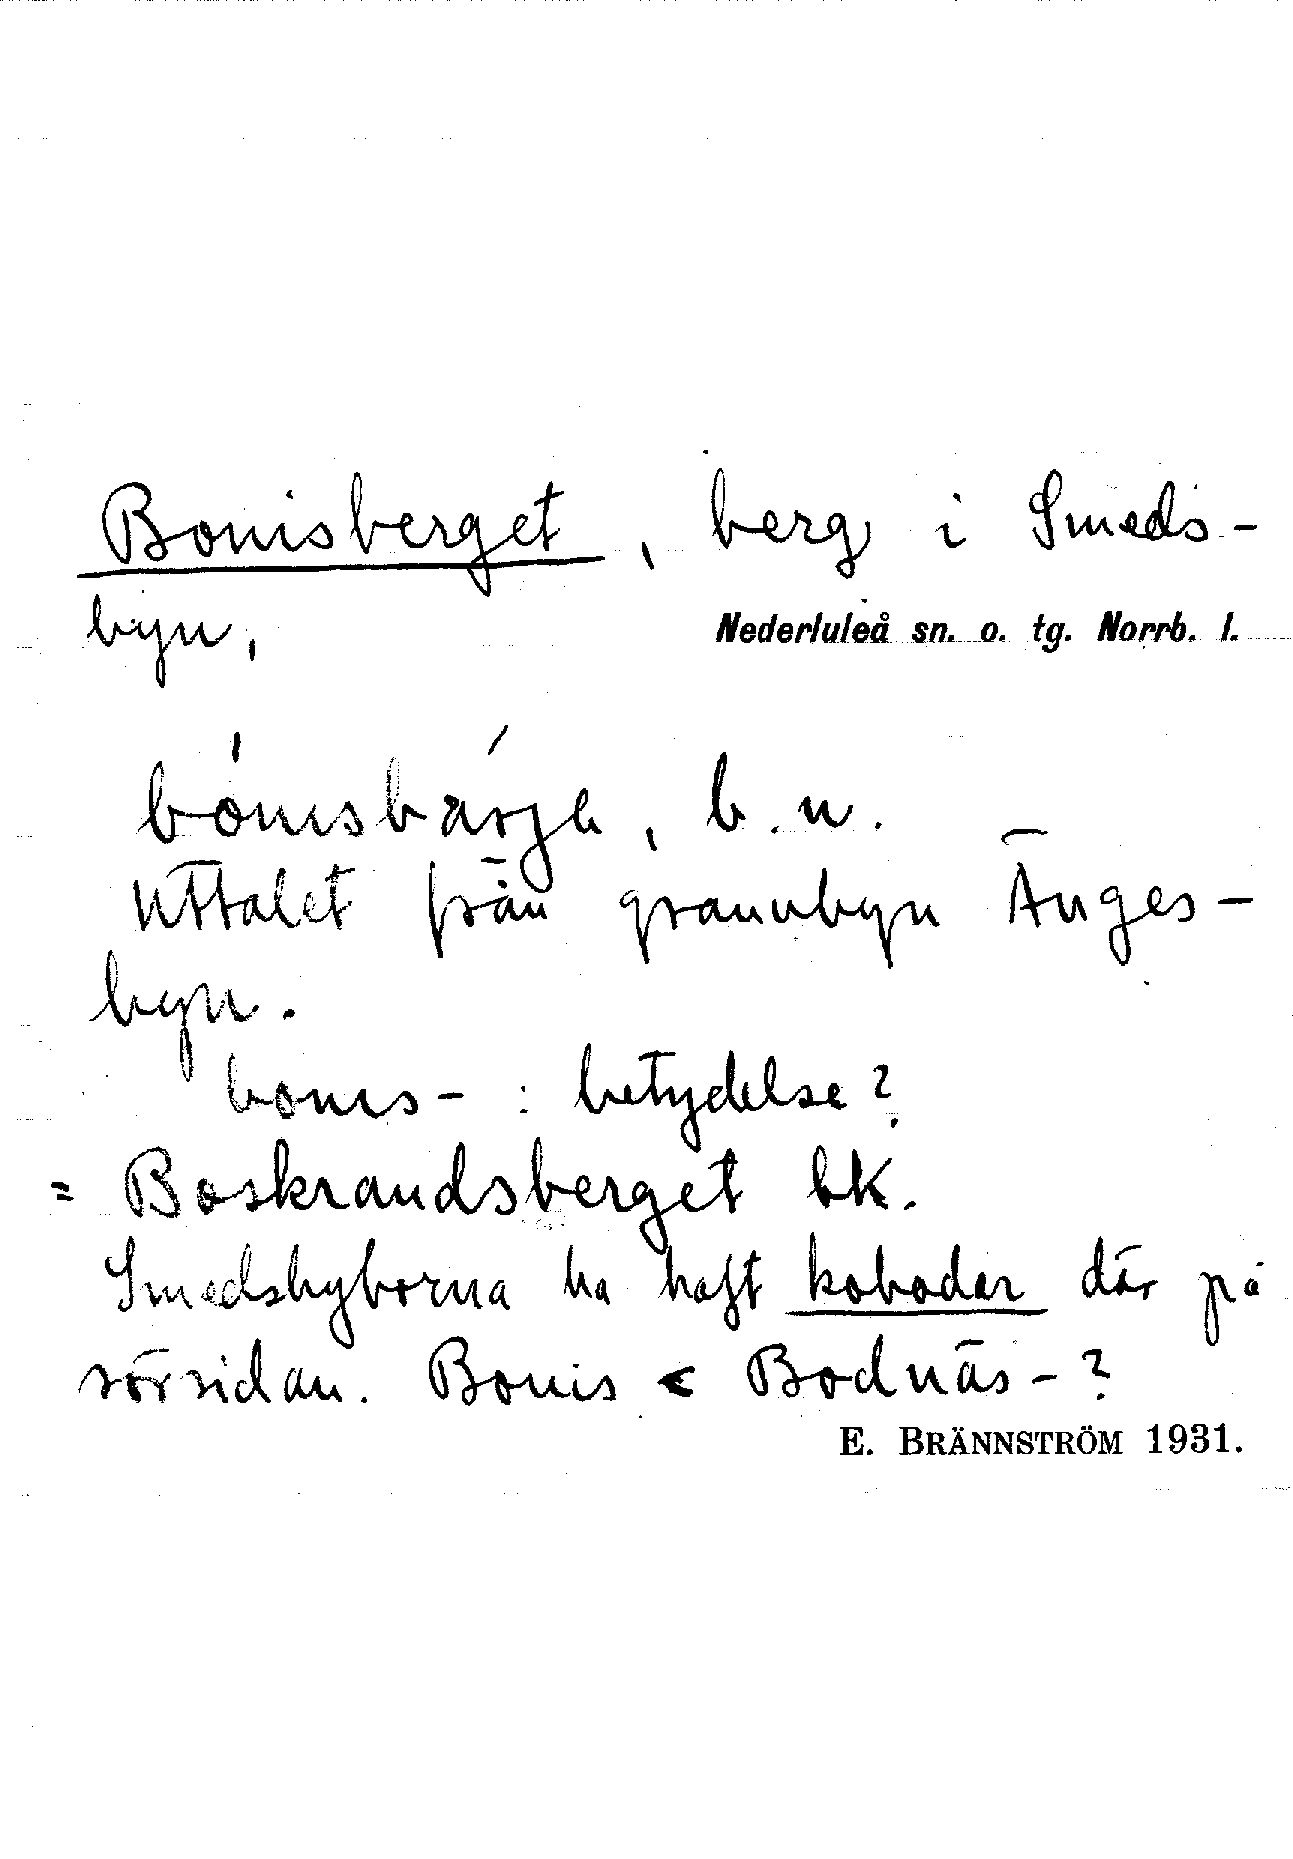 Bonisberget, berg i Smeds-
byn, Nederluleå sn. o. tg. Norrb. l.
bónısbárja, b. n.
Uttalet från grannbyn Änges-
byn.
bonıs- : betydelse?
= Boskrandsberget bk.
Smedsbyborna ha haft kobodar där på
sörsidan. Bonis < Bodnäs-?
E. BRÄNNSTRÖM 1931.